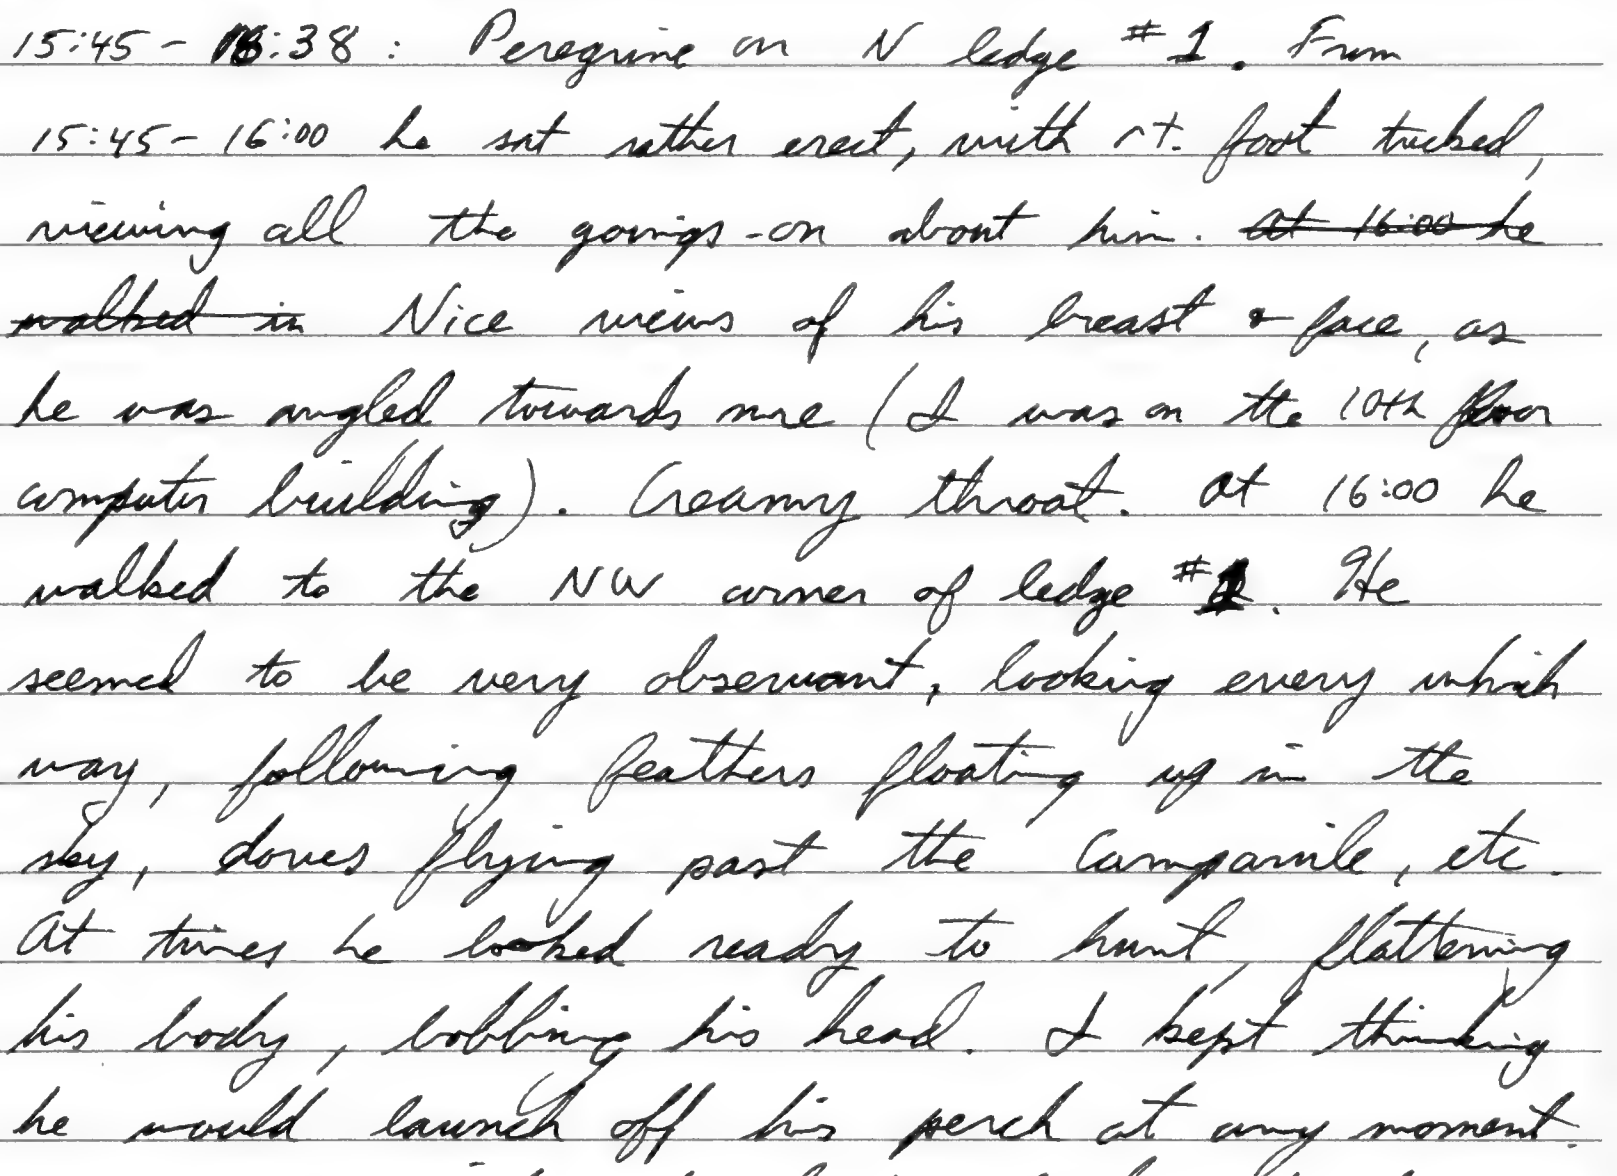 15:45 - 16:38 : Peregrine on N ledge #1. From
15:45 - 16:00 he sat rather erect, with rt. foot tucked,
viewing all the goings-on about him. ~~At 16:00 he~~
~~walked in~~ Nice views of his breast & face, as
he was angled towards me (I was on the 10th floor
computer building). Creamy throat. At 16:00 he
walked to the NW corner of ledge #1. He
seemed to be very observant, looking every which
way, following feathers floating up in the
sky, doves flying past the Campanile, etc.
At times he looked ready to hunt, flattening
his body, bobbing his head. I kept thinking
he would launch off his perch at any moment.